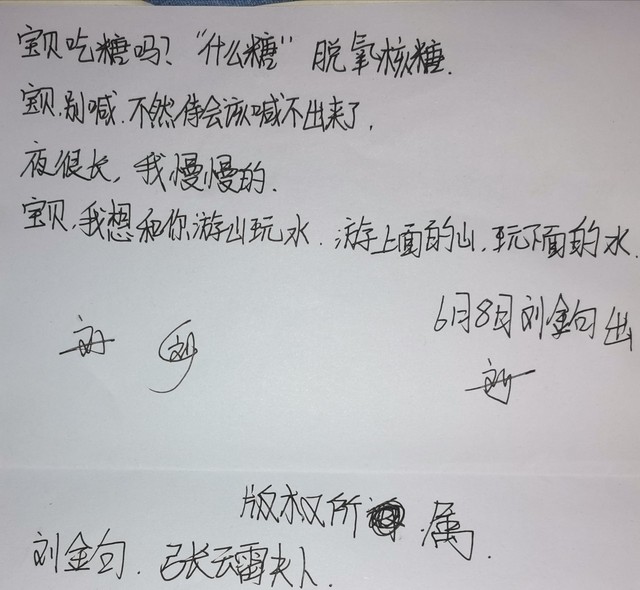 宝贝吃糖吗？“什么糖”脱氧核糖.
宝贝.别喊.不然待会该喊不出来了.
夜很长，我慢慢的.
宝贝,我想和你游山玩水.游上面的山,玩下面的水.
6月8日刘金句出
刘 刘
刘
版权所 属.
刘金句. 张云雷夫人.